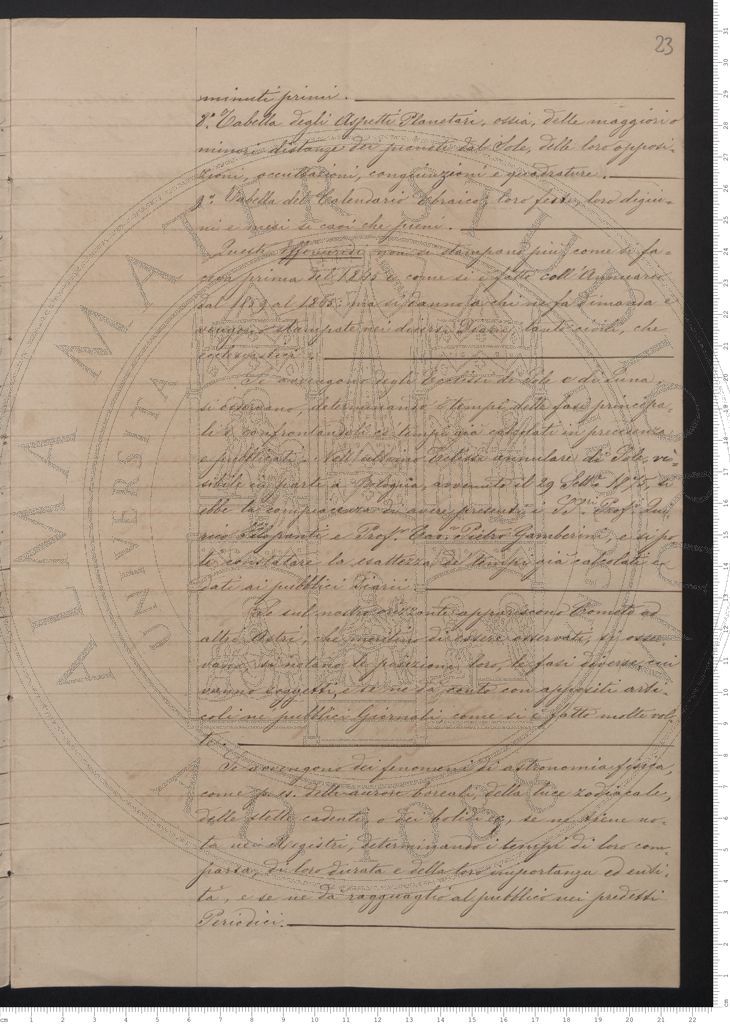 23
minuti primi.
8.ª Tabella degli Aspetti Planetari, ossia, delle maggiori o
minori distanze dei pianeti dal Sole, delle loro opposi-
zioni, occultazioni, congiunzioni e quadrature.
9.ª Tabella del Calendario Ebraico, loro feste, loro digiu-
ni e mesi si cavi che pieni.
Queste Effemeridi non si stampano più, come si fa-
ceva prima del e come si è fatto coll'Annuario
dal 1859 al 1865; ma si danno a chi ne fa dimanda e
vengono stampate nei diversi Diarii, tanto civili, che
ecclesiastici.
Se avvengono degli Ecclissi di Sole o di Luna
si osservano, determinando i tempi delle fasi principa-
li e confrontandoli co' tempi già calcolati in precedenza
e pubblicati. Nell'ultimo Eclisse annulare di Sole, vi-
sibile in parte a Bologna, avvenuto il 29 Sett.e 1875, si
ebbe la compiacenza di avere presenti i Prof.i Qui-
rico Filopanti e Prof.r Cav. Pietro Gamberini, e si po-
tè constatare la esattezza de' tempi già calcolati e
dati ai pubblici Diarii.
Se sul nostro orizzonte appariscono Comete od
altri Astri, che meritino di essere osservati, si osser-
vano, si notano le posizioni loro, le fasi diverse, cui
vanno soggetti, e se ne dà conto con appositi arti-
coli ne' pubblici Giornali, come si è fatto molte vol-
te.
Se avvengono dei fenomeni di astronomia fisica,
come p. es. delle aurore boreali, della luce zodiacale,
delle stelle cadenti, o dei bolidi, se ne tiene no-
ta nei Registri, determinando i tempi di loro com-
parsa, di loro durata e della loro importanza ed enti-
tà, e se ne dà ragguaglio al pubblico nei predetti
Periodici.
ALMA MATER STUDIORUM
UNIVERSITÀ
A.D. 1088